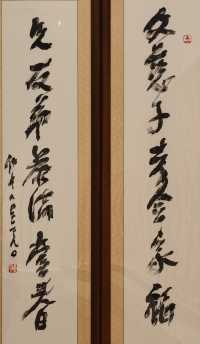 父慈子孝全家福
兄友弟恭滿堂春